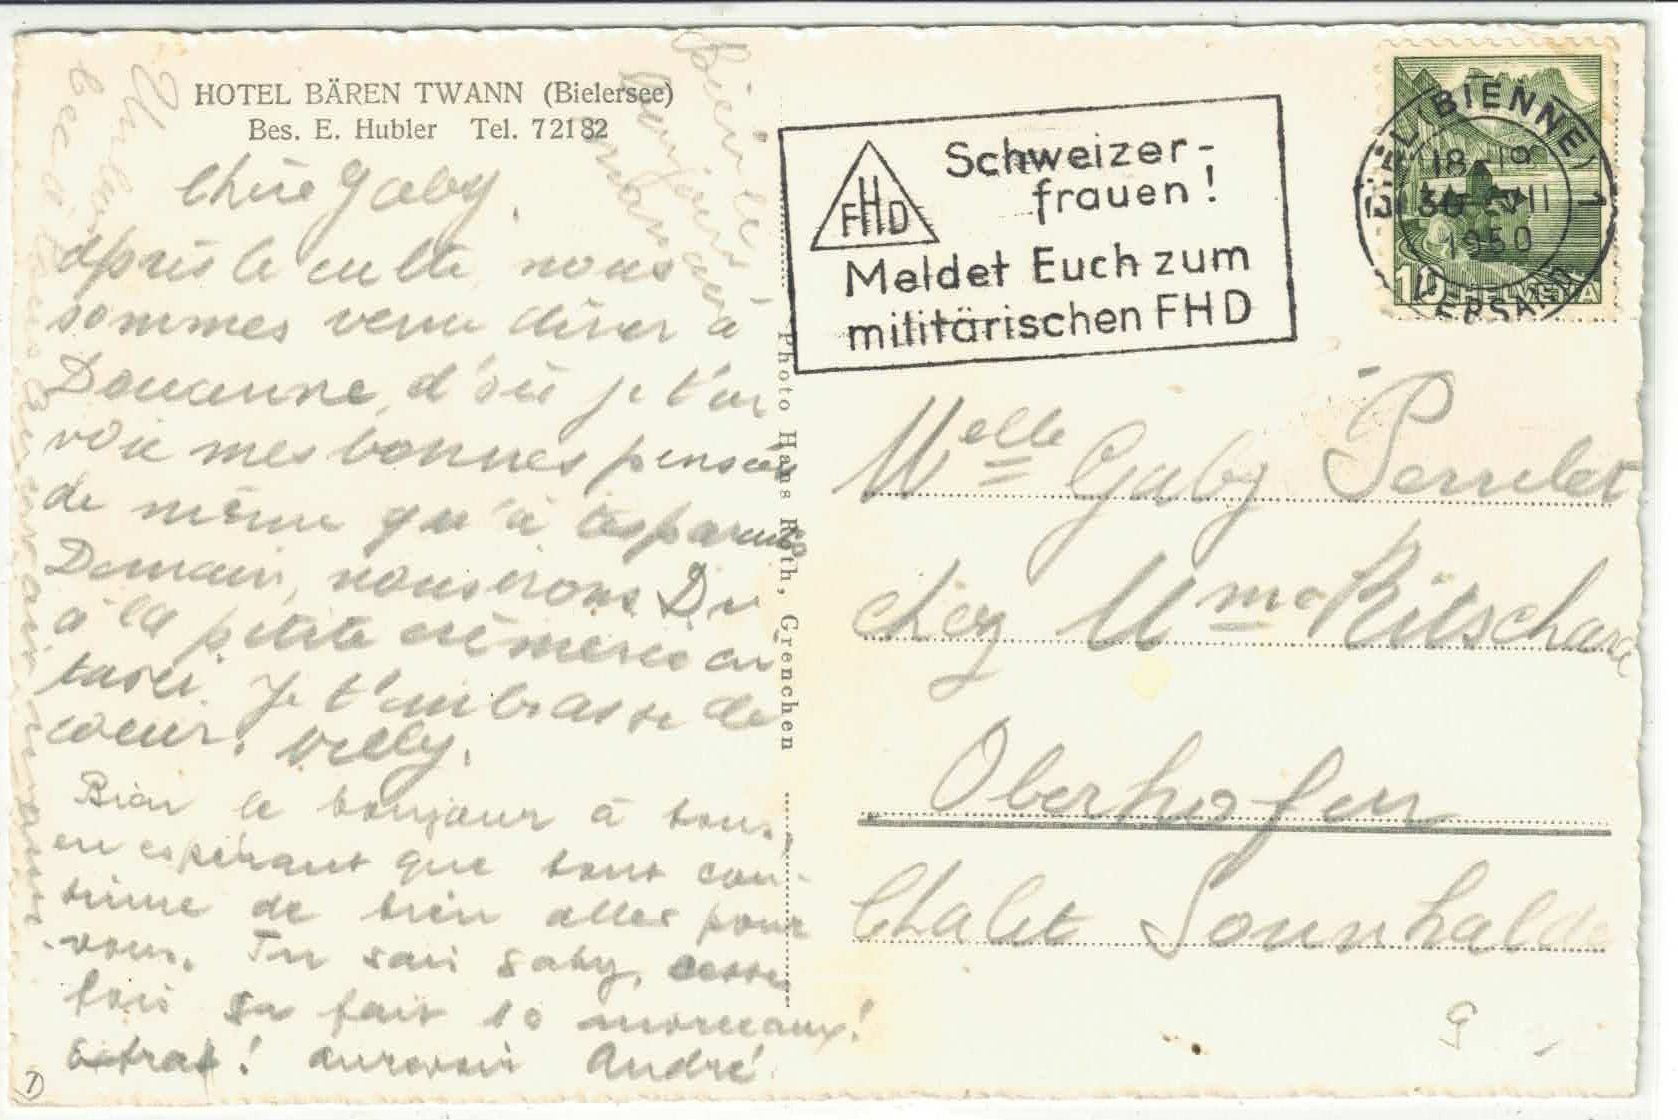 HOTEL BÄREN TWANN (Bielersee)
Bes. E. Hubler Tel. 72182
Chère Gaby,
après le culte nous
sommes venu dîner à
Douanne, d'où je t'en
voie mes bonnes pensées
de même qu'à tes parents
Demain, nous irons Du
à la petite crèmerie en
Je t'embrasse de
coeur. Willy.
Bien le bonjour à tous
en espérant que tout con-
tinue de bien aller pour
vous. Tu sais Gaby, cette
fois sa fait 10 morceaux!
Extra! aurevoir André
Photo Hans Roth, Grenchen
FHD
Schweizer-
frauen!
Meldet Euch zum
militärischen FHD
BIEL (BIENNE) 1
18-19
30 VII
1950
VERSAND
10 HELVETIA
Melle Gaby Perrelet
chez Mme Ritschard
Oberhofen
Chalet Sonnhalde